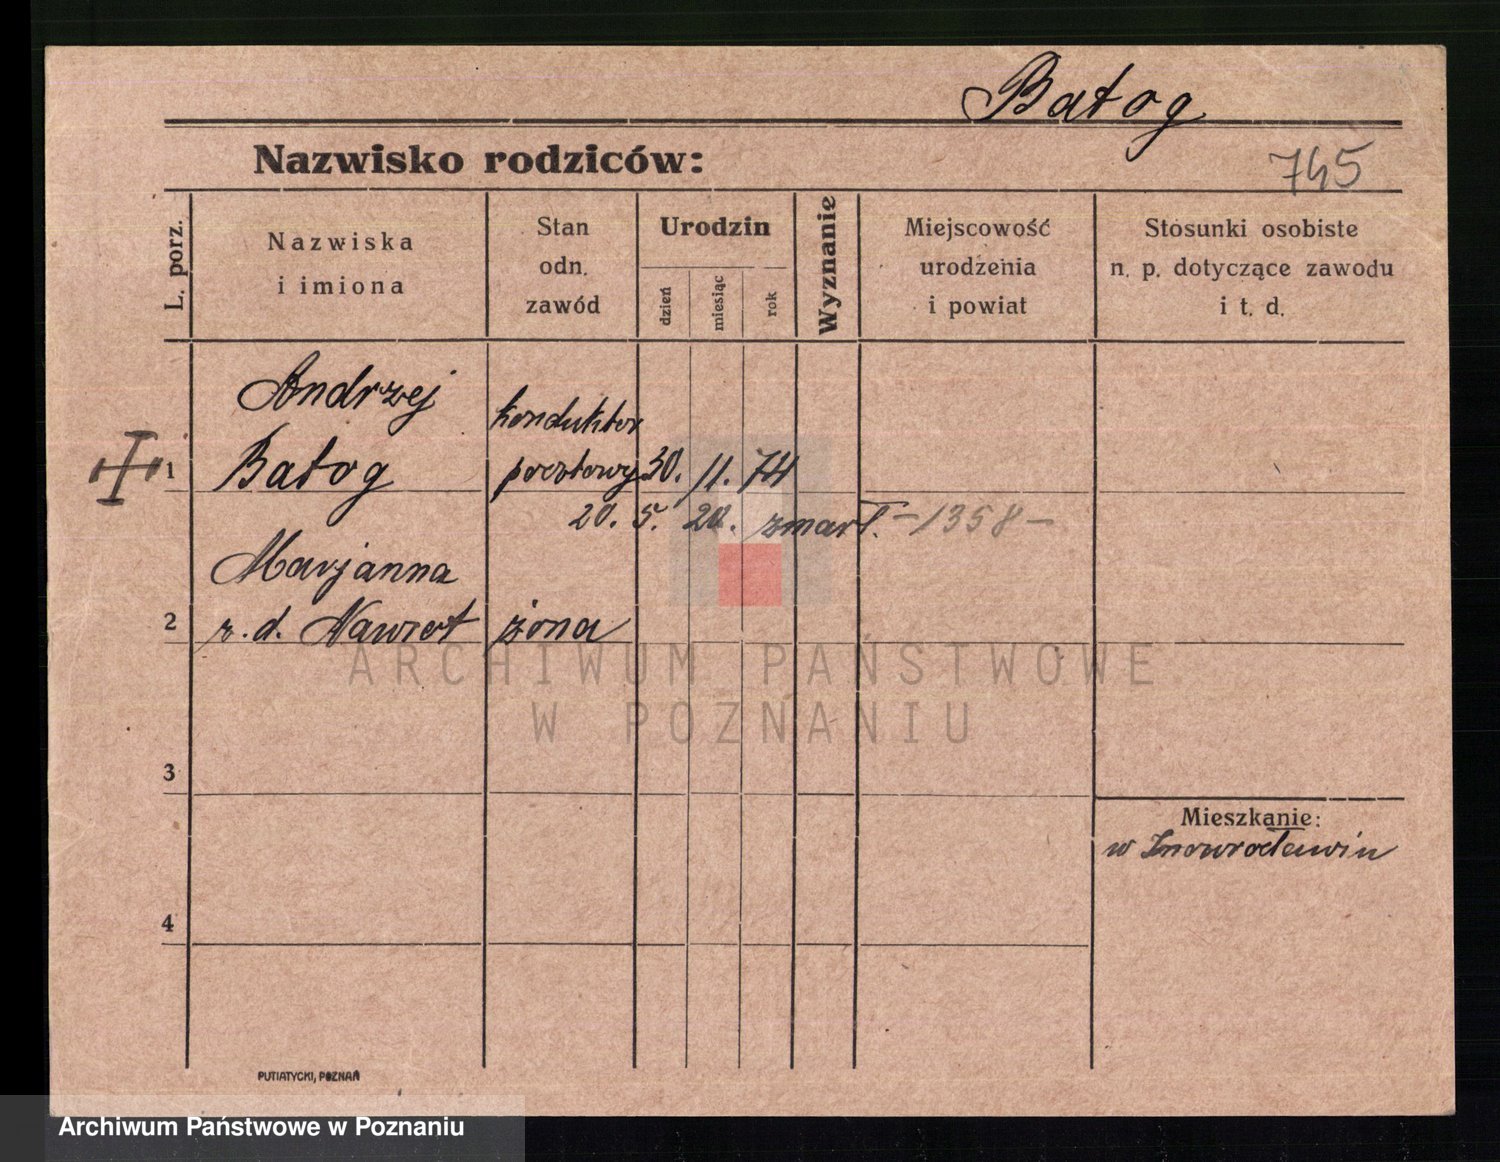 Batog
Nazwisko rodziców:
745
L. porz.
Nazwiska
i imiona
Stan
odn.
zawód
Urodzin
dzień
miesiąc
rok
Wyznanie
Miejscowość
urodzenia
i powiat
Stosunki osobiste
n. p. dotyczące zawodu
i t. d.
Andrzej
konduktor
1
Batog
pocztowy
30. 11. 74
20. 5. 20. zmarł. -1358-
Marjanna
2
z. d. Nawrot
żona
ARCHIWUM PAŃSTWOWE
W POZNANIU
3
Mieszkanie:
w Inowrocławiu
4
PUTIATYCKI, POZNAŃ
Archiwum Państwowe w Poznaniu